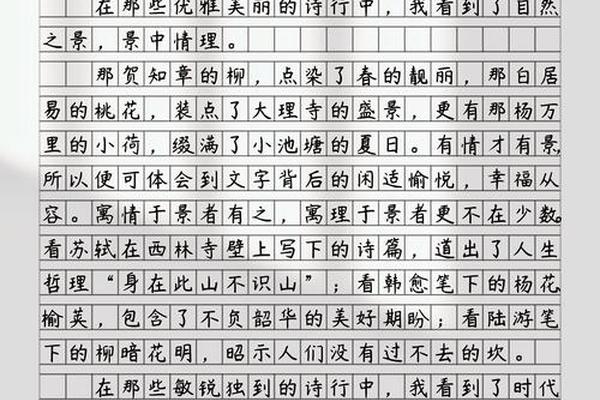 在那些优雅美丽的诗行中，我看到了自然
之景，景中情理。
那贺知章的柳，点染了春的靓丽，那白居
易的桃花，装点了大理寺的盛景，更有那杨万
里的小荷，缀满了小池塘的夏日。有情才有景，
所以便可体会到文字背后的闲适愉悦，幸福从
容。寓情于景者有之，寓理于景者更不在少数。
看苏轼在西林寺壁上写下的诗篇，道出了人生
哲理“身在此山不识山”；看韩愈笔下的杨花
榆荚，包含了不负韶华的美好期盼；看陆游笔
下的柳暗花明，昭示人们没有过不去的坎。
在那些敏锐独到的诗行中，我看到了时代